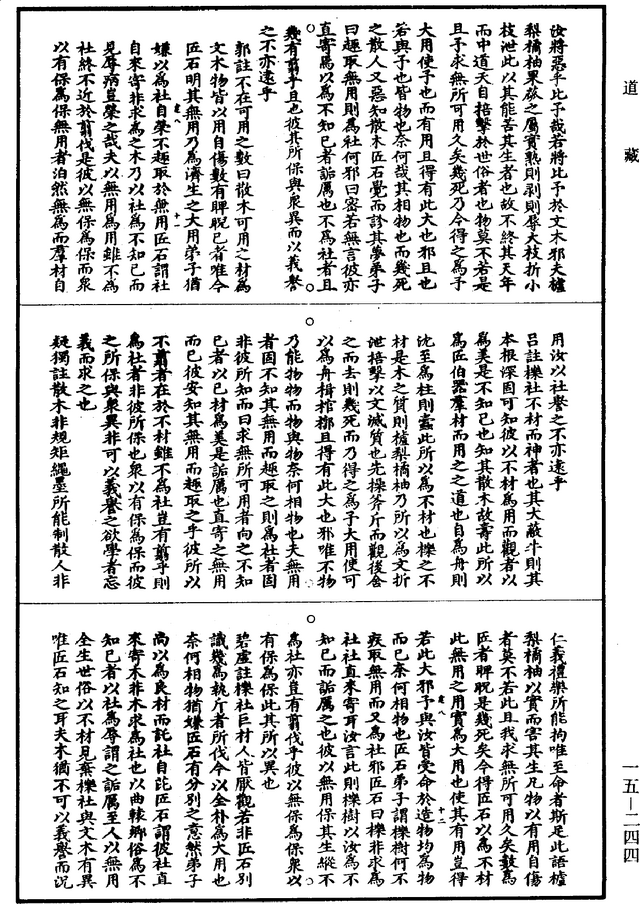 道藏
汝將惡乎比予哉若將比予於文木邪夫樝
梨橘柚果蓏之屬實熟則剥則辱大枝折小
枝泄此以其能苦其生者也故不終其天年
而中道夭自掊擊於世俗者也物莫不若是
且予求無所可用久矣幾死乃今得之為予
大用使予也而有用且得有此大也邪且也
若與予也皆物也奈何哉其相物也而幾死
之散人又惡知散木匠石覺而診其夢弟子
曰趣取無用則為社何邪曰密若無言彼亦
直寄焉以為不知己者詬厲也不為社者且
幾有翦乎且也彼其所保與衆異而以義譽
之不亦遠乎
郭註不在可用之數曰散木可用之材為
文木物皆以用自傷數有睥睨己者唯今
匠石明其無用乃為濟生之大用弟子猶
嫌以為社自榮不趣取於無用匠石謂社
自來寄非求為之木乃以社為不知己而
見辱病豈榮之哉夫以無用為用雖不為
社終不近於翦伐是彼以無保為保而衆
以有保為保無用者泊然無為而羣材自
用汝以社譽之不亦遠乎
吕註櫟社不材而神者也其大蔽牛則其
本根深固可知彼以不材為用而觀者以
為美是不知己也知其散木故壽此所以
為匠伯器羣材而用之之道也自為舟則
沈至為柱則蠹此所以為不材也櫟之不
材是木之質則樝梨橘柚乃所以為文折
泄掊擊以文滅質也先操斧斤而觀後舍
之而去則幾死而乃得之為予大用使可
以為舟楫棺槨且得有此大也邪唯不物
乃能物物而物與物奈何相物也夫無用
者固不知其無用而趣取之則為社者固
非彼所知而曰求無所可用者向之不知
已者以已材為美是詬厲也直寄之無用
而已彼安知其無用而趣取之乎彼所以
不翦者在於不材雖不為社豈有翦乎則
為社者非彼所保也衆以有保為保而彼
之所保與衆異非可以義譽之欲學者忘
義而求之也
疑獨註散木非規矩繩墨所能制散人非
仁義禮樂所能拘唯至命者斯足此語樝
梨橘柚以實而害其生凡物以有用自傷
者莫不若此且我求無所可用久矣數為
匠者睥睨是幾死矣今得匠石以為不材
此無用之用實為大用也使其有用豈得
若此大邪予與汝皆受命於造物均為物
而已奈何相物也匠石弟子謂櫟樹何不
疾取無用而又為社邪匠石曰櫟非求為
社社直來寄耳汝言此則櫟樹以汝為不
知己而詬厲之也彼以無用保其生縱不
為社亦豈有翦伐乎彼以無保為保衆以
有保為保此其所以異也
碧虛註櫟社巨材人皆厭觀若非匠石别
識幾為執斤者所伐今以全朴為大用也
奈何相物猶嫌匠石有分别之意然弟子
尚以為良材而託社自託匠石謂彼社直
來寄木非木求為社也以曲轅鄉俗為不
知己者以社為辱謂之詬厲至人以無用
全生世俗以不材見棄櫟社與文木有異
唯匠石知之耳夫木猶不可以義譽而况
一五—二四四